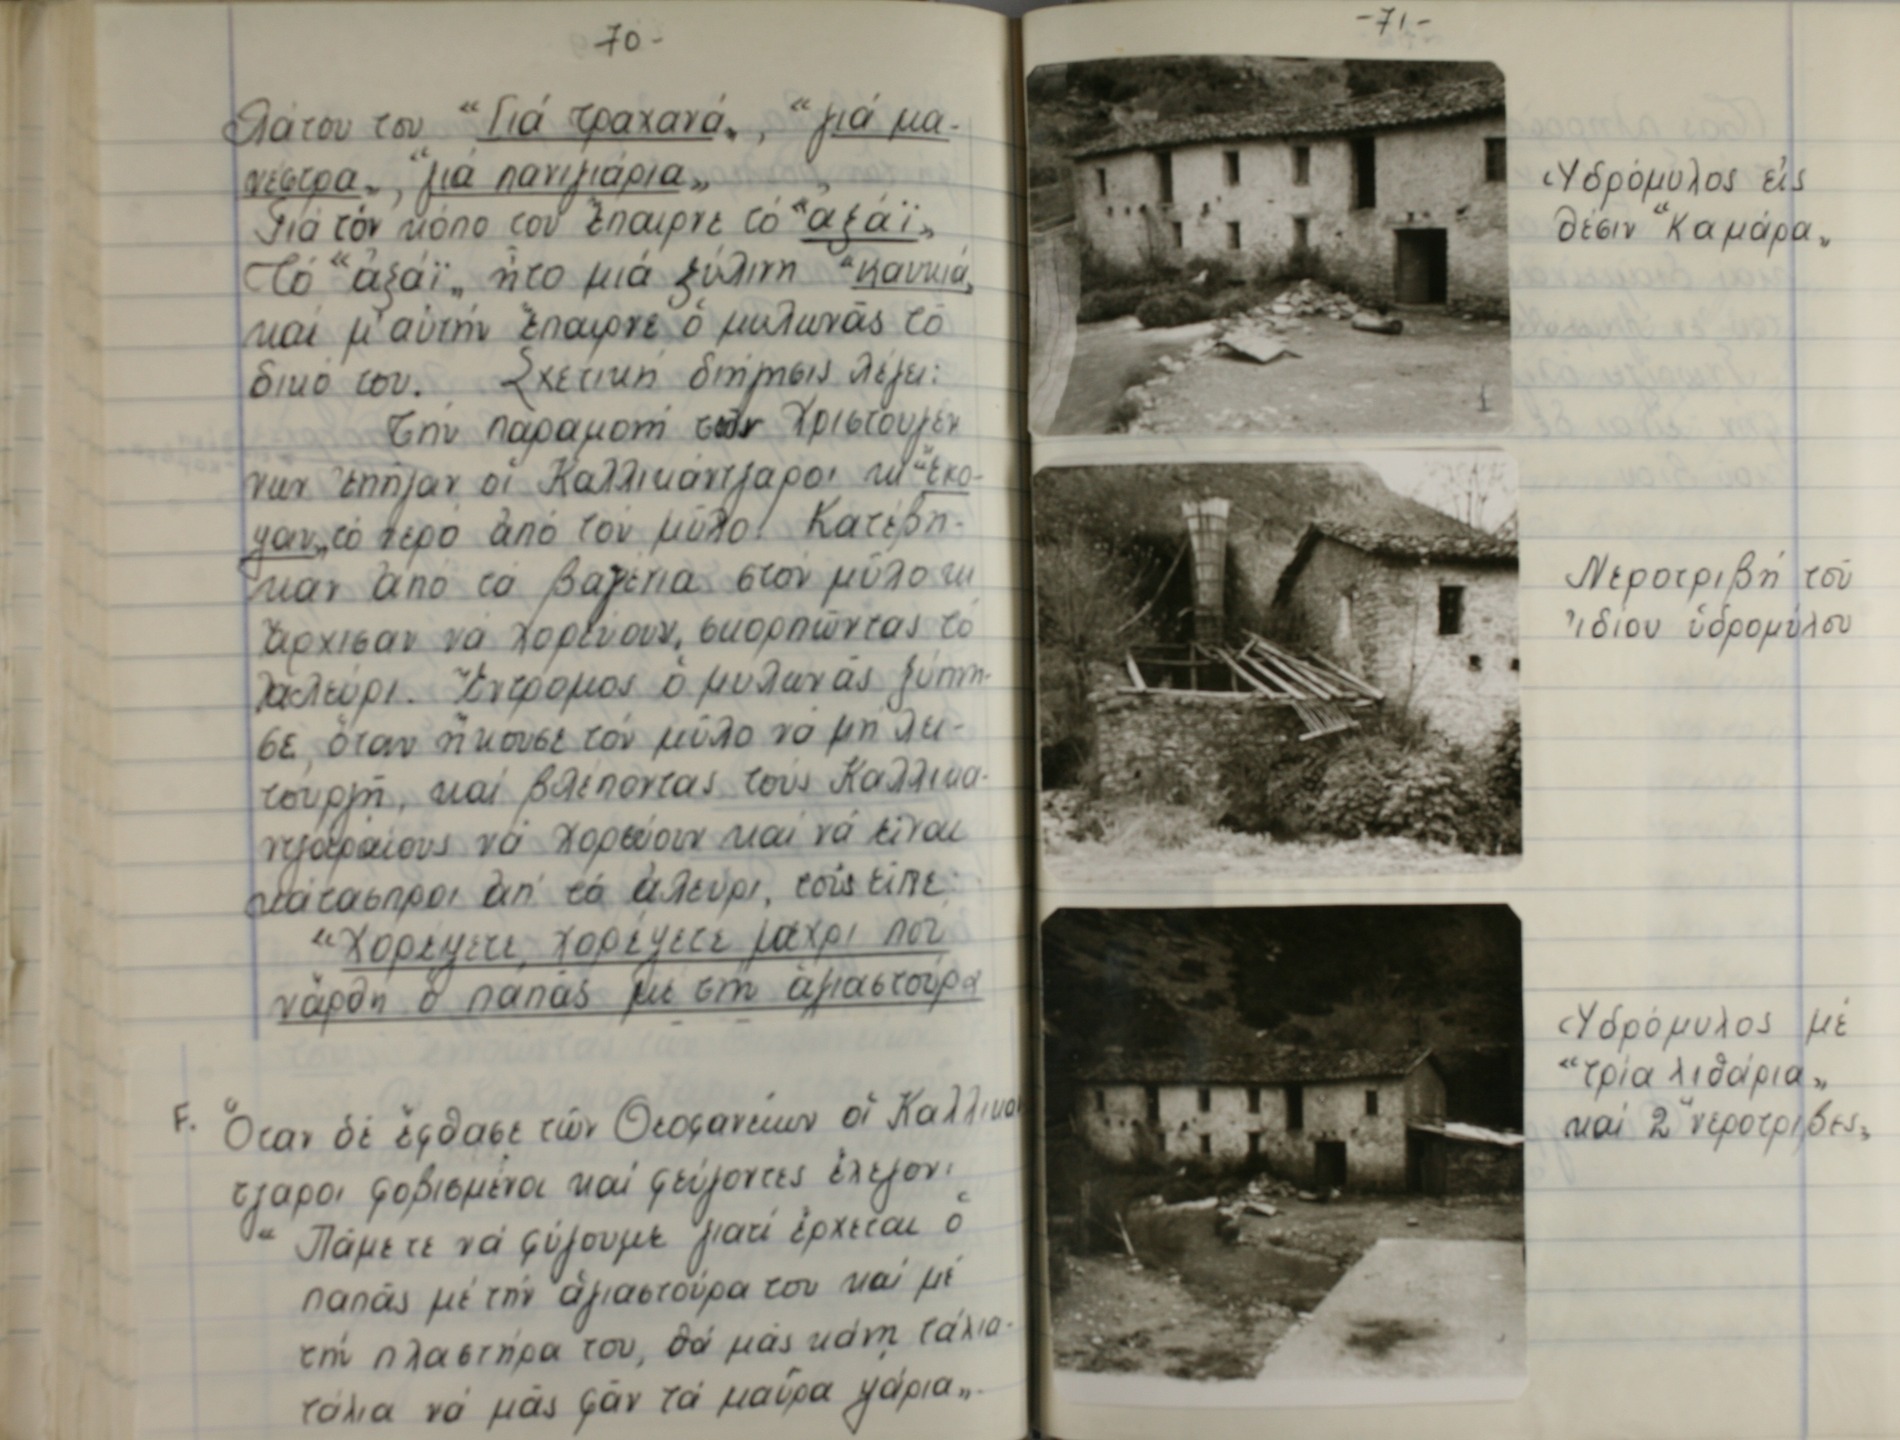 -70-
λάτου του “Γιά τραχανά„, “γιά μα-
νέστρα„, “γιά πανιγιάρια„
Γιά τόν κόπο του ἔπαιρνε τό “ἀξάϊ„
Τό “ἀξάϊ„ ἦτο μιά ξύλινη “καυκιά„
καί μ' αὐτήν ἔπαιρνε ὁ μυλωνᾶς τό
δικό του. Σχετική διήγησις λέγει:
Τήν παραμονή τῶν Χριστουγέν
νων ἐπῆγαν οἱ Καλλικάντζαροι κι “ἔκο-
ψαν„ τό νερό ἀπό τόν μῦλο. Κατέβη-
καν ἀπό τά βαγένια στόν μῦλο κι
ἄρχισαν νά χορεύουν, σκορπῶντας τό
ἀλεύρι. Ἔντρομος ὁ μυλωνᾶς ξύπνη-
σε, ὅταν ἤκουσε τόν μῦλο νά μή λει-
τουργῇ, καί βλέποντας τούς Καλλικα-
ντζαραίους νά χορεύουν καί νά εἶναι
κάτασπροι ἀπ' τό ἀλεύρι, τούς εἶπε:
“Χορέψετε, χορέψετε μέχρι πού
νἄρθη ὁ παπᾶς μέ τήν ἁγιαστούρα
F. Ὅταν δέ ἔφθασε τῶν Θεοφανείων οἱ Καλλικάν
τζαροι φοβισμένοι καί φεύγοντες ἔλεγον:
“Πάμετε νά φύγουμε γιατί ἔρχεται ὁ
παπᾶς μέ τήν ἁγιαστούρα του καί μέ
τήν πλαστήρα του, θά μᾶς κάνη τάλια-
τάλια νά μᾶς φᾶν τά μαῦρα ψάρια„.
-71-
Ὑδρόμυλος εἰς
θέσιν “Καμάρα„
Νεροτριβή τοῦ
ἰδίου ὑδρομύλου
Ὑδρόμυλος μέ
“τρία λιθάρια„
καί 2 “νεροτριβές„